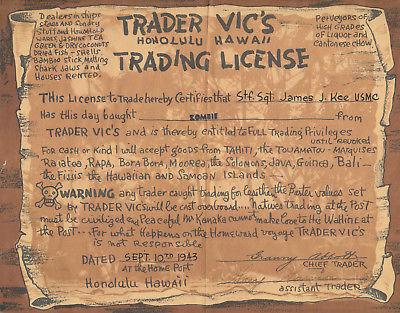 Dealers in ships
Glass and Sundry
Stuff and Household
Wares Jasmine Tea
Green & Dry Coconuts
Dried Fish - Shells
Bamboo Stick Matting
Shark Jaws and
Houses Rented.
TRADER VIC'S
HONOLULU HAWAII
TRADING LICENSE
Purveyors of
High Grades
of Liquor and
Cantonese Chow
This License to Trade hereby Certifies that Stf. Sgt. James J. Kee USMC
Has this day bought ZOMBIE from
TRADER VIC'S and is thereby entitled to Full Trading Privileges
until revoked
For cash or kind I will accept goods from Tahiti, the Touamatou-Marquises
Raiatea, Rapa, Bora Bora, Moorea, the Solomons, Java, Guinea, Bali
the Fijis the Hawaiian and Samoan Islands
WARNING any Trader caught trading for less than the Barter values set
by TRADER VIC'S will be cast overboard.... Natives Trading at the Post
must be civilized & Peaceful Mr. Kanaka cannot make love to the Wahine at
the Post.. For what happens on the Homeward voyage TRADER VIC'S
is not Responsible
DATED SEPT. 10TH 1943
at the Home Post
Honolulu Hawaii
Granny Abbott
CHIEF TRADER
assistant Trader